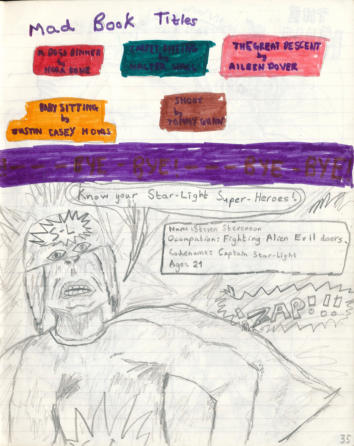 Mad Book Titles
A DOGS DINNER
by
NORA BONE
CARPET FITTING
by
WALTER WALL
THE GREAT DESCENT
by
AILEEN DOVER
BABY SITTING
by
JUSTIN CASEY HOWLS
SHOUT
by
TOMMY GUNN
BYE-BYE!
BYE-BYE
Know your Star-Light Super-Heroes!
S-L
Name: Steven Stevenson
Occupation: Fighting Alien Evil doers.
Codename: Captain Star-Light
Age: 21
ZAP!!!
35